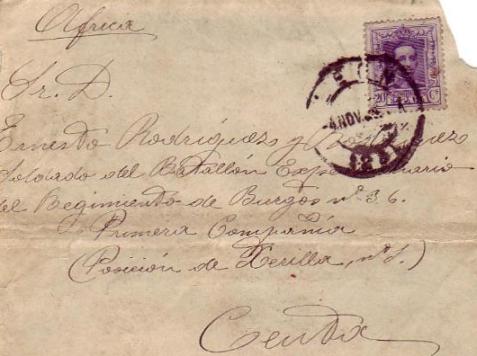 Africa
Sr. D.
Ernesto Rodríguez y
Soldado del Batallón Expedicionario
del Regimiento de Burgos nº 36.
Primera Compañía
(Posición de Xerilla, nº 1.)
Ceuta
4 NOV.
20 Cs